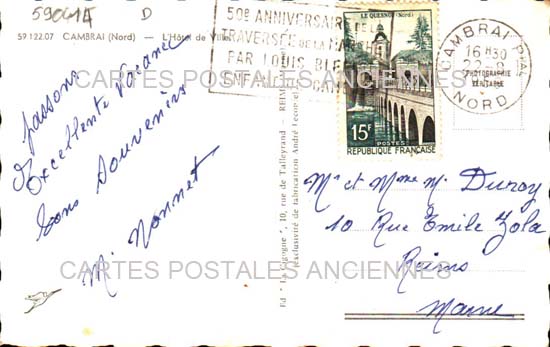 59041A D
59 122.07 CAMBRAI (Nord) — L'Hôtel de Ville
passons
Excellente Vacances
bons Souvenirs
M. Monnet
50e ANNIVERSAIRE DE LA
TRAVERSÉE DE LA MANCHE
PAR LOUIS BLE
ENFANT DE CAM
LE QUESNOY (Nord)
15F
POSTES
REPUBLIQUE FRANÇAISE
CAMBRAI PPAL
16 H30
22-8
NORD
PHOTOGRAPHIE
VÉRITABLE
Ed. "La Cigogne", 10, rue de Talleyrand - REIMS
(exclusivité de fabrication André Leconte)
Mr et Mme M. Duroy
10 Rue Emile Zola
Reims
Marne
CARTES POSTALES ANCIENNES
CARTES POSTALES ANCIENNES